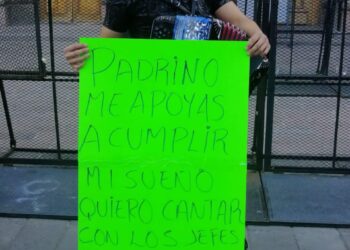 PADRINO
ME APOYAS
A CUMPLIR
MI SUEÑO
QUIERO CANTAR
CON LOS JEFES